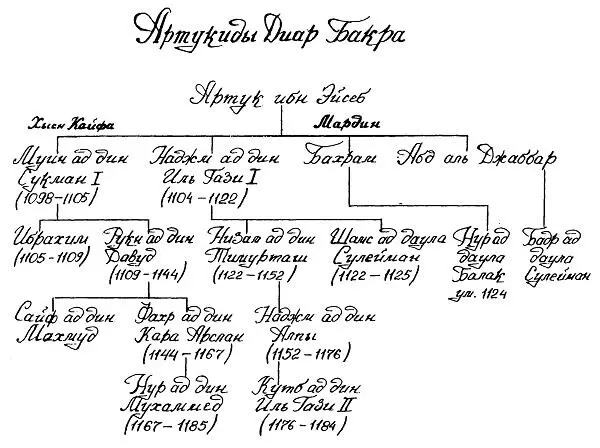 Артукиды Диар Бакра
Артук ибн Эйсеб
Хысн Кайфа
Мардин
Муйн ад дин
Сукман I
(1098-1105)
Наджм ад дин
Иль Гази I
(1104-1122)
Бахрам
Абд аль Джаббар
Ибрахим
(1105-1109)
Рукн ад дин
Давуд
(1109-1144)
Низам ад дин
Тимурташ
(1122-1152)
Шамс ад даула
Сулейман
(1122-1125)
Нур ад
даула
Балак
ум. 1124
Бадр ад
даула
Сулейман
Сайф ад дин
Махмуд
Фахр ад дин
Кара Арслан
(1144-1167)
Наджм ад дин
Алпы
(1152-1176)
Нур ад дин
Мухаммед
(1167-1185)
Кутб ад дин
Иль Гази II
(1176-1184)